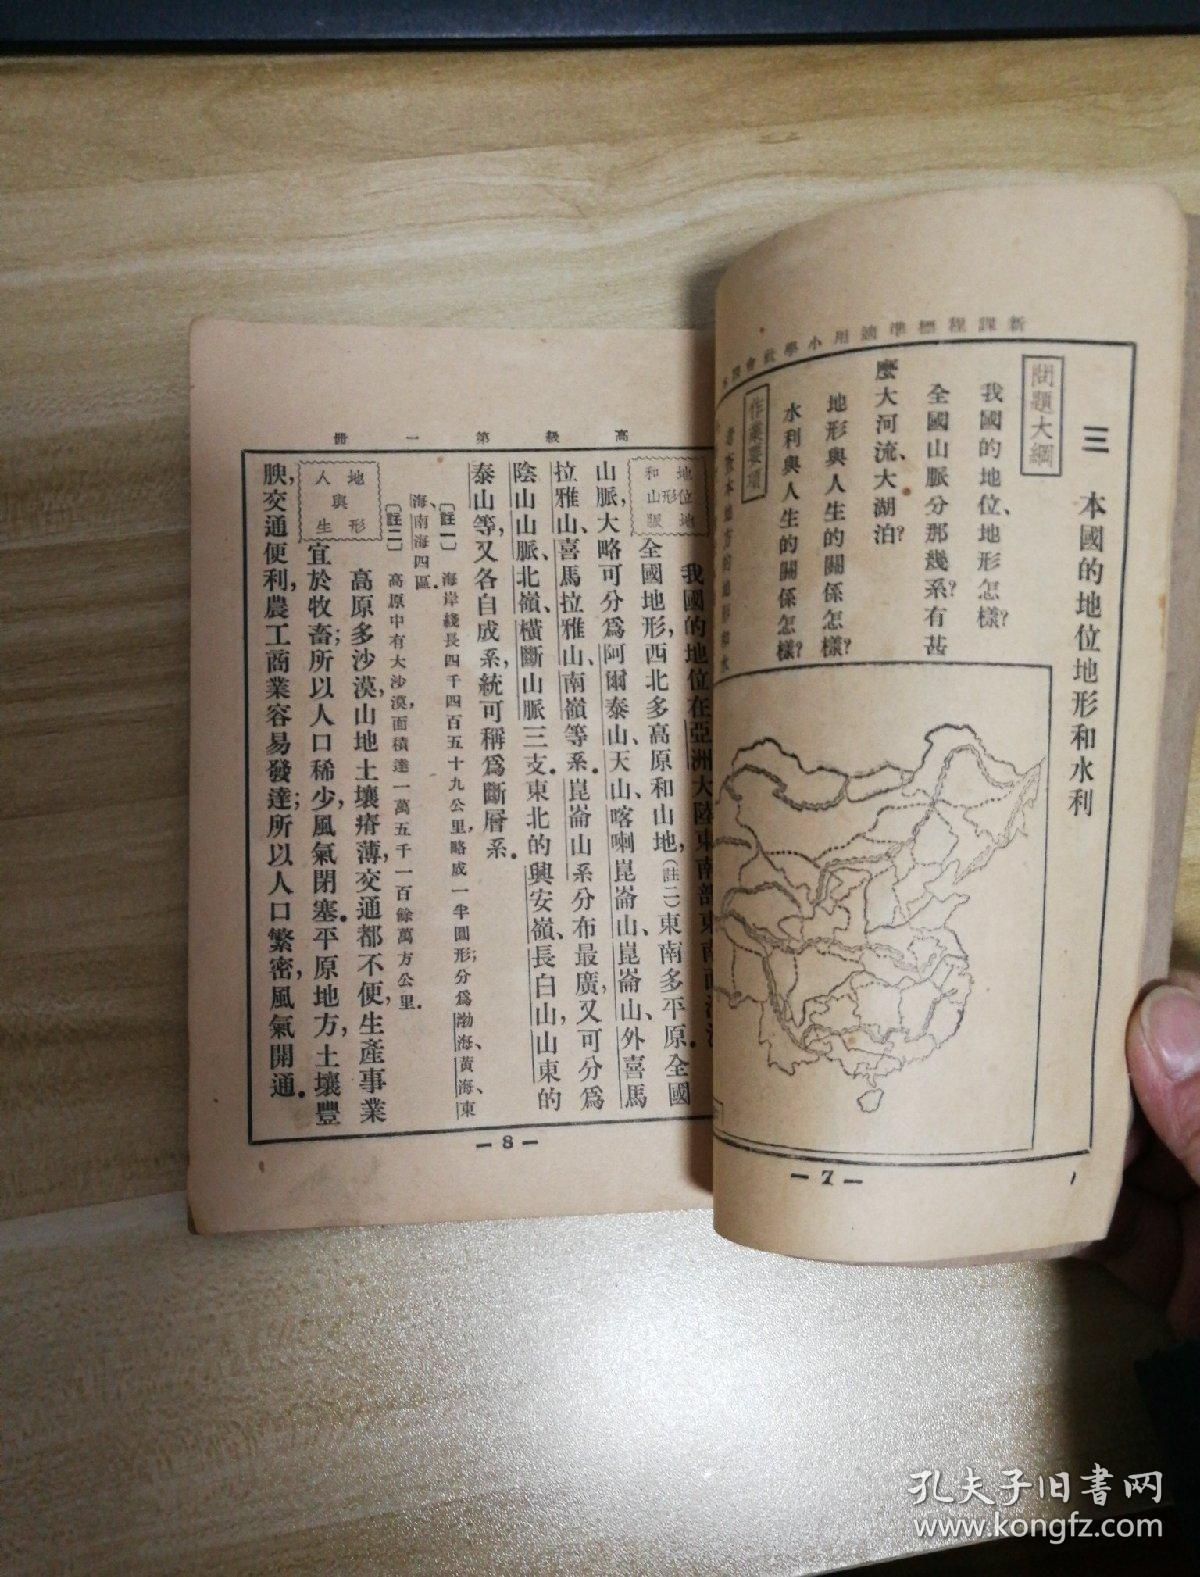 新課程標準適用小學社會課本
三　本國的地位地形和水利
問題大綱
我國的地位、地形怎樣?
全國山脈分那幾系?有甚
麼大河流、大湖泊?
地形與人生的關係怎樣?
水利與人生的關係怎樣?
作業要項
考查本地方的地形和水
— 7 —
高級第一冊
地位地形和山脈
我國的地位在亞洲大陸東南部東南
全國地形,西北多高原和山地,(註二)東南多平原.全國
山脈,大略可分為阿爾泰山、天山、喀喇崑崙山、崑崙山、外喜馬
拉雅山、喜馬拉雅山、南嶺等系.崑崙山系分布最廣,又可分為
陰山山脈、北嶺、橫斷山脈三支.東北的興安嶺、長白山,山東的
泰山等,又各自成系統,可稱為斷層系.
〔註一〕海岸綫長四千四百五十九公里,略成一半圓形;分為渤海、黃海、東
海、南海四區.
〔註二〕高原中有大沙漠,面積達一萬五千一百餘萬方公里.
地形與人生
高原多沙漠,山地土壤瘠薄,交通都不便,生產事業
宜於牧畜;所以人口稀少,風氣閉塞.平原地方,土壤豐
腴,交通便利,農工商業容易發達;所以人口繁密,風氣開通.
— 8 —
孔夫子旧書网
www.kongfz.com